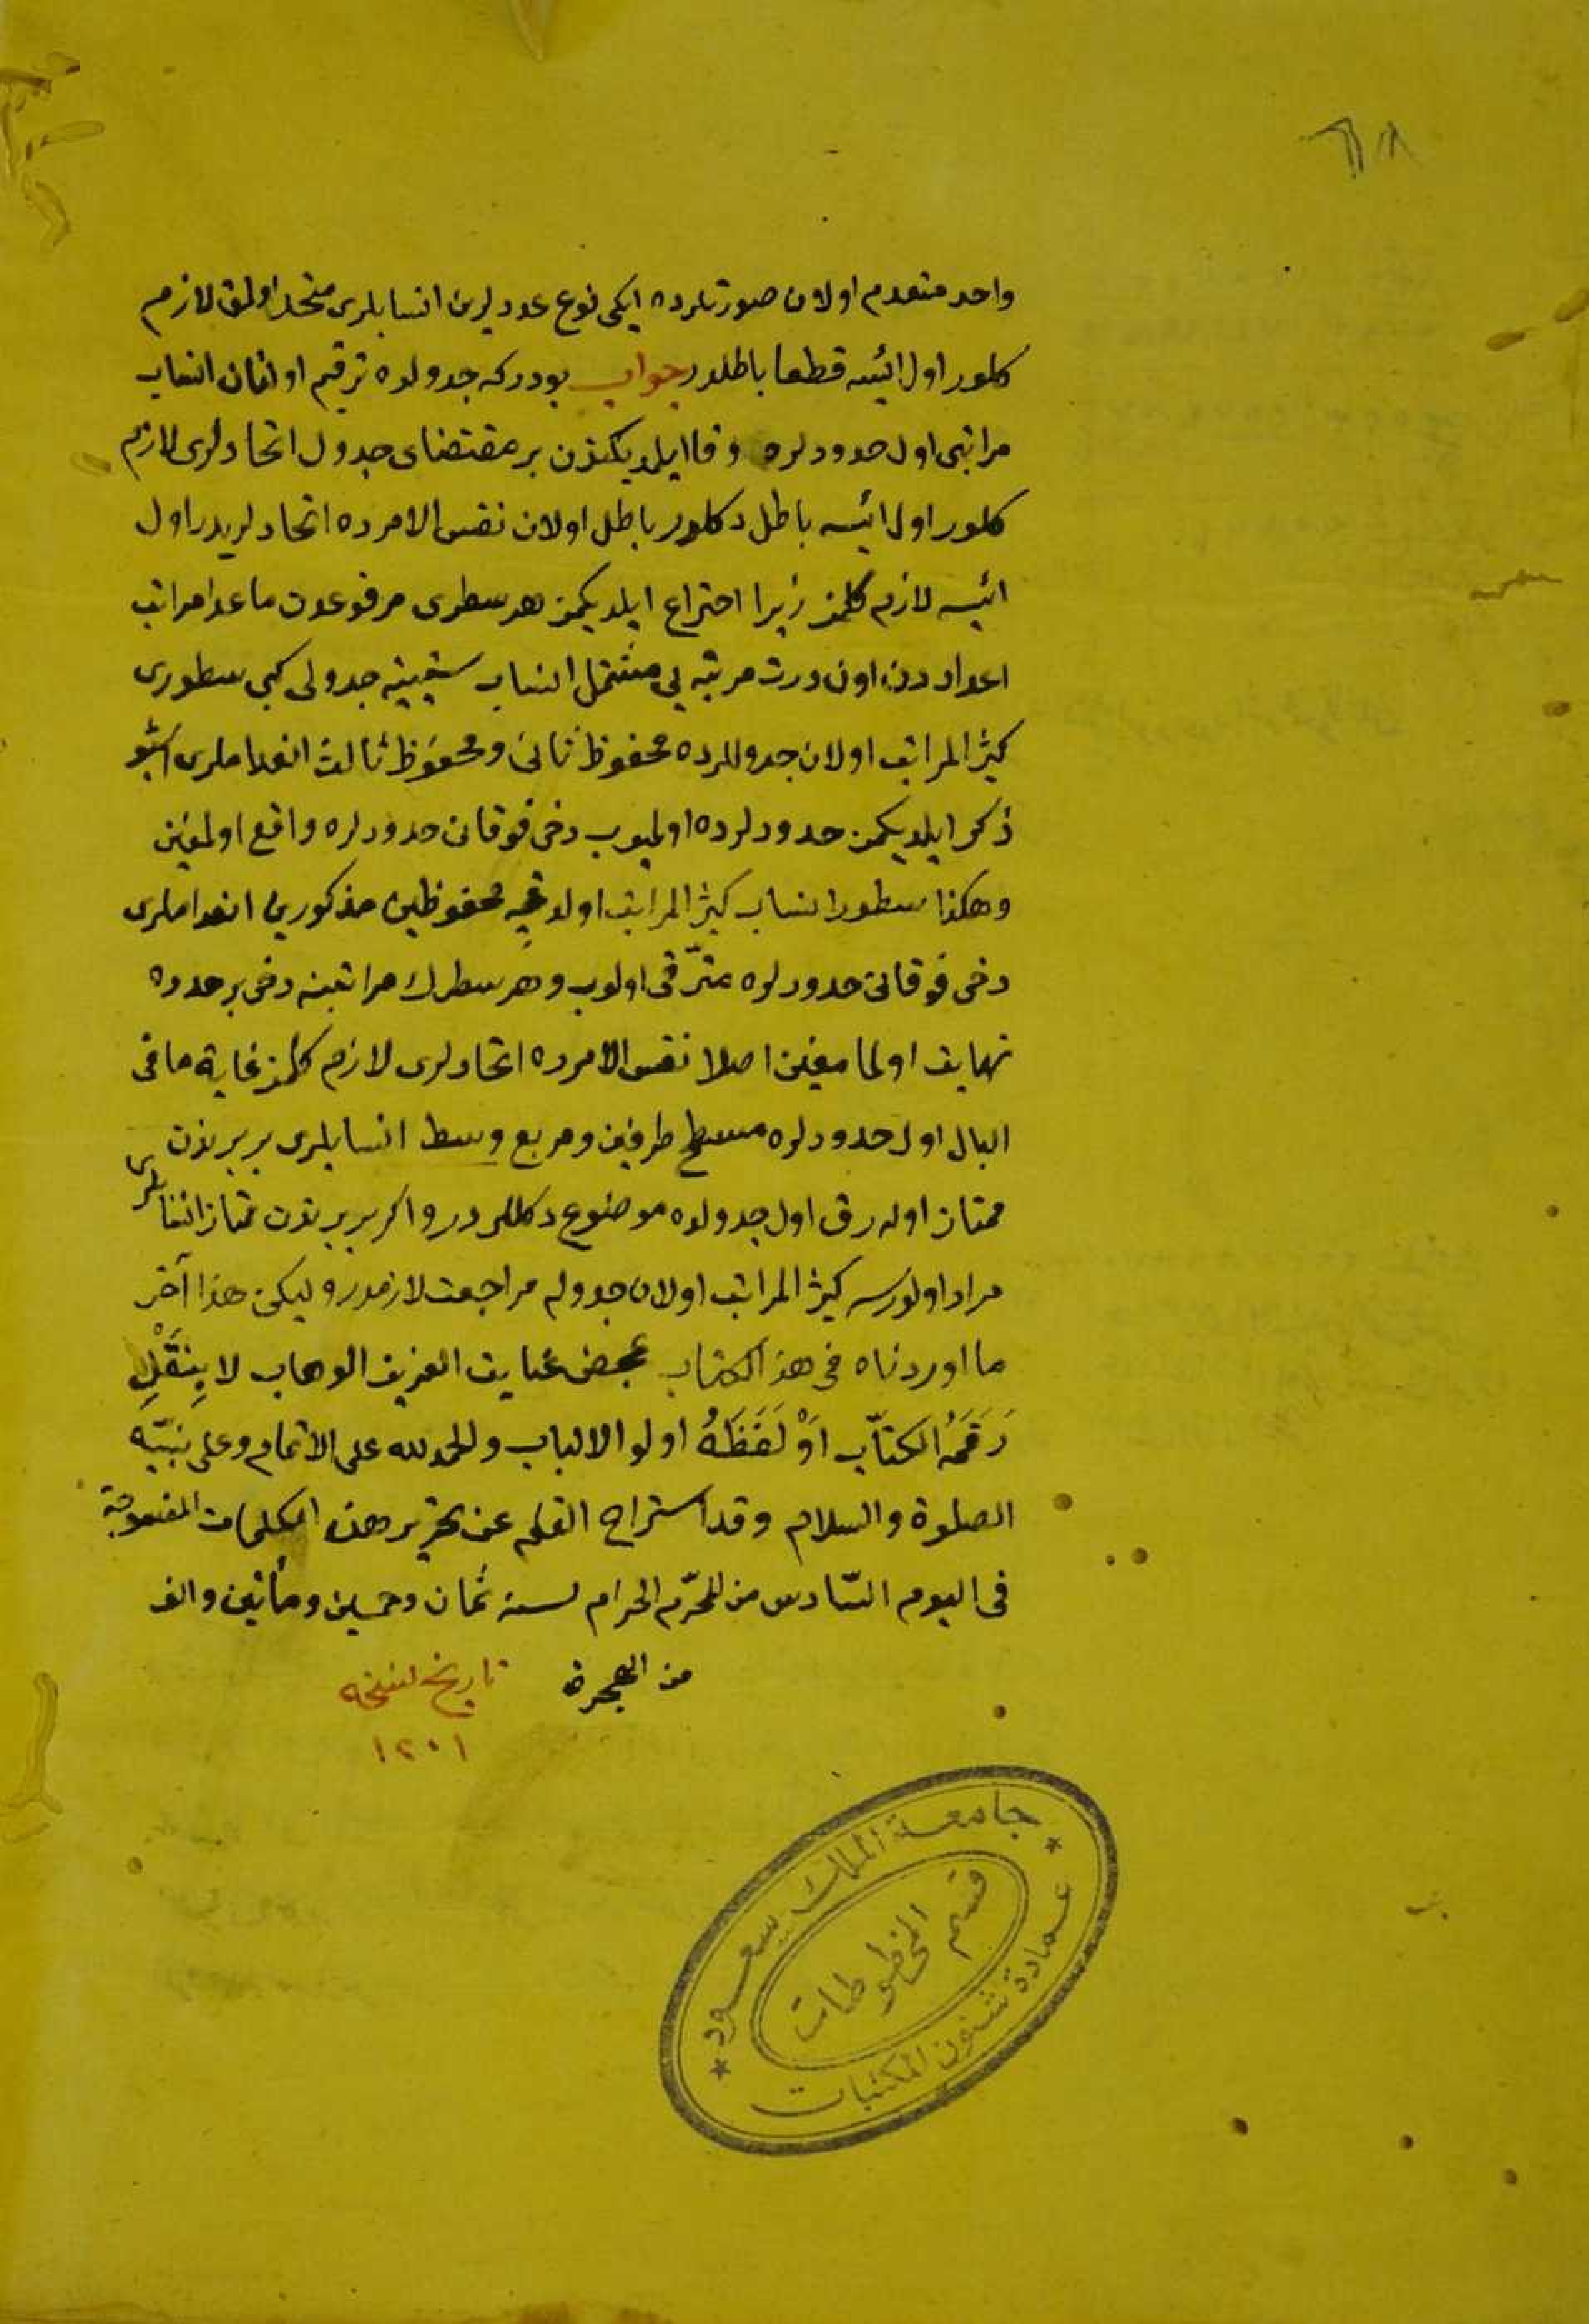 واحد متعدم اولان صورتلرده ایکی نوع عددلرین انسابلری متحد اولمق لازم
کلور اول ائیسه قطعا باطلدر جواب بودرکه جدولده ترقیم اولنان انساب
مراتبی اول حدودلره وفا ایلدیکندن بر مقتضای جدول اتحادلری لازم
کلور اول ائیسه باطل دکلدر باطل اولان نفس الامرده اتحادلریدر اول
ائیسه لازم کلمز زیرا اختراع ایلدیکمز هر سطری مرفوعدن ماعدا مراتب
اعداددن اون درت مرتبه یی مشتمل انساب ستینیه جدولی کبی سطوری
کثیر المراتب اولان جدوللرده محفوظ ثانی ومحفوظ ثالث انعداملری اشبو
ذکر ایلدیکمز حدودلرده اولمیوب دخی فوقانی حدودلره واقع اولمغین
وهکذا سطور انساب کثیر المراتب اولدغیه محفوظین مذکورین انعداملری
دخی فوقانی حدودلره مترقی اولوب وهر سطرك مراتبنه دخی بر حدده
نهایت اولمامغین اصلا نفس الامرده اتحادلری لازم کلمز غایة ما فی
البال اول حدودلره مسطح طرفین ومربع وسط انسابلری بربرندن
ممتاز اوله رق اول جدولده موضوع دکللردر واکر بربرندن ممتاز انسابلری
مراد اولورسه کثیر المراتب اولان جدوله مراجعت لازمدر ولیکن هذا آخر
ما اوردناه فی هذا الکتاب بمحض عنایت العزیز الوهاب لا ینقل
رَقَمَهُ الکتّاب اَوْ لَفَظَهُ اولوا الالباب والحمد لله علی الاتمام وعلی نبیّه
الصلوة والسلام وقد استراح القلم عن تحریر هذه الکلمات
فی الیوم السّادس من المحرّم الحرام لسنه ثمان وخمسین ومأتین والف
من الهجرة تاریخ لنسخه
١٢٠١
جامعة الملك سعود
قسم المخطوطات
عمادة شئون المكتبات